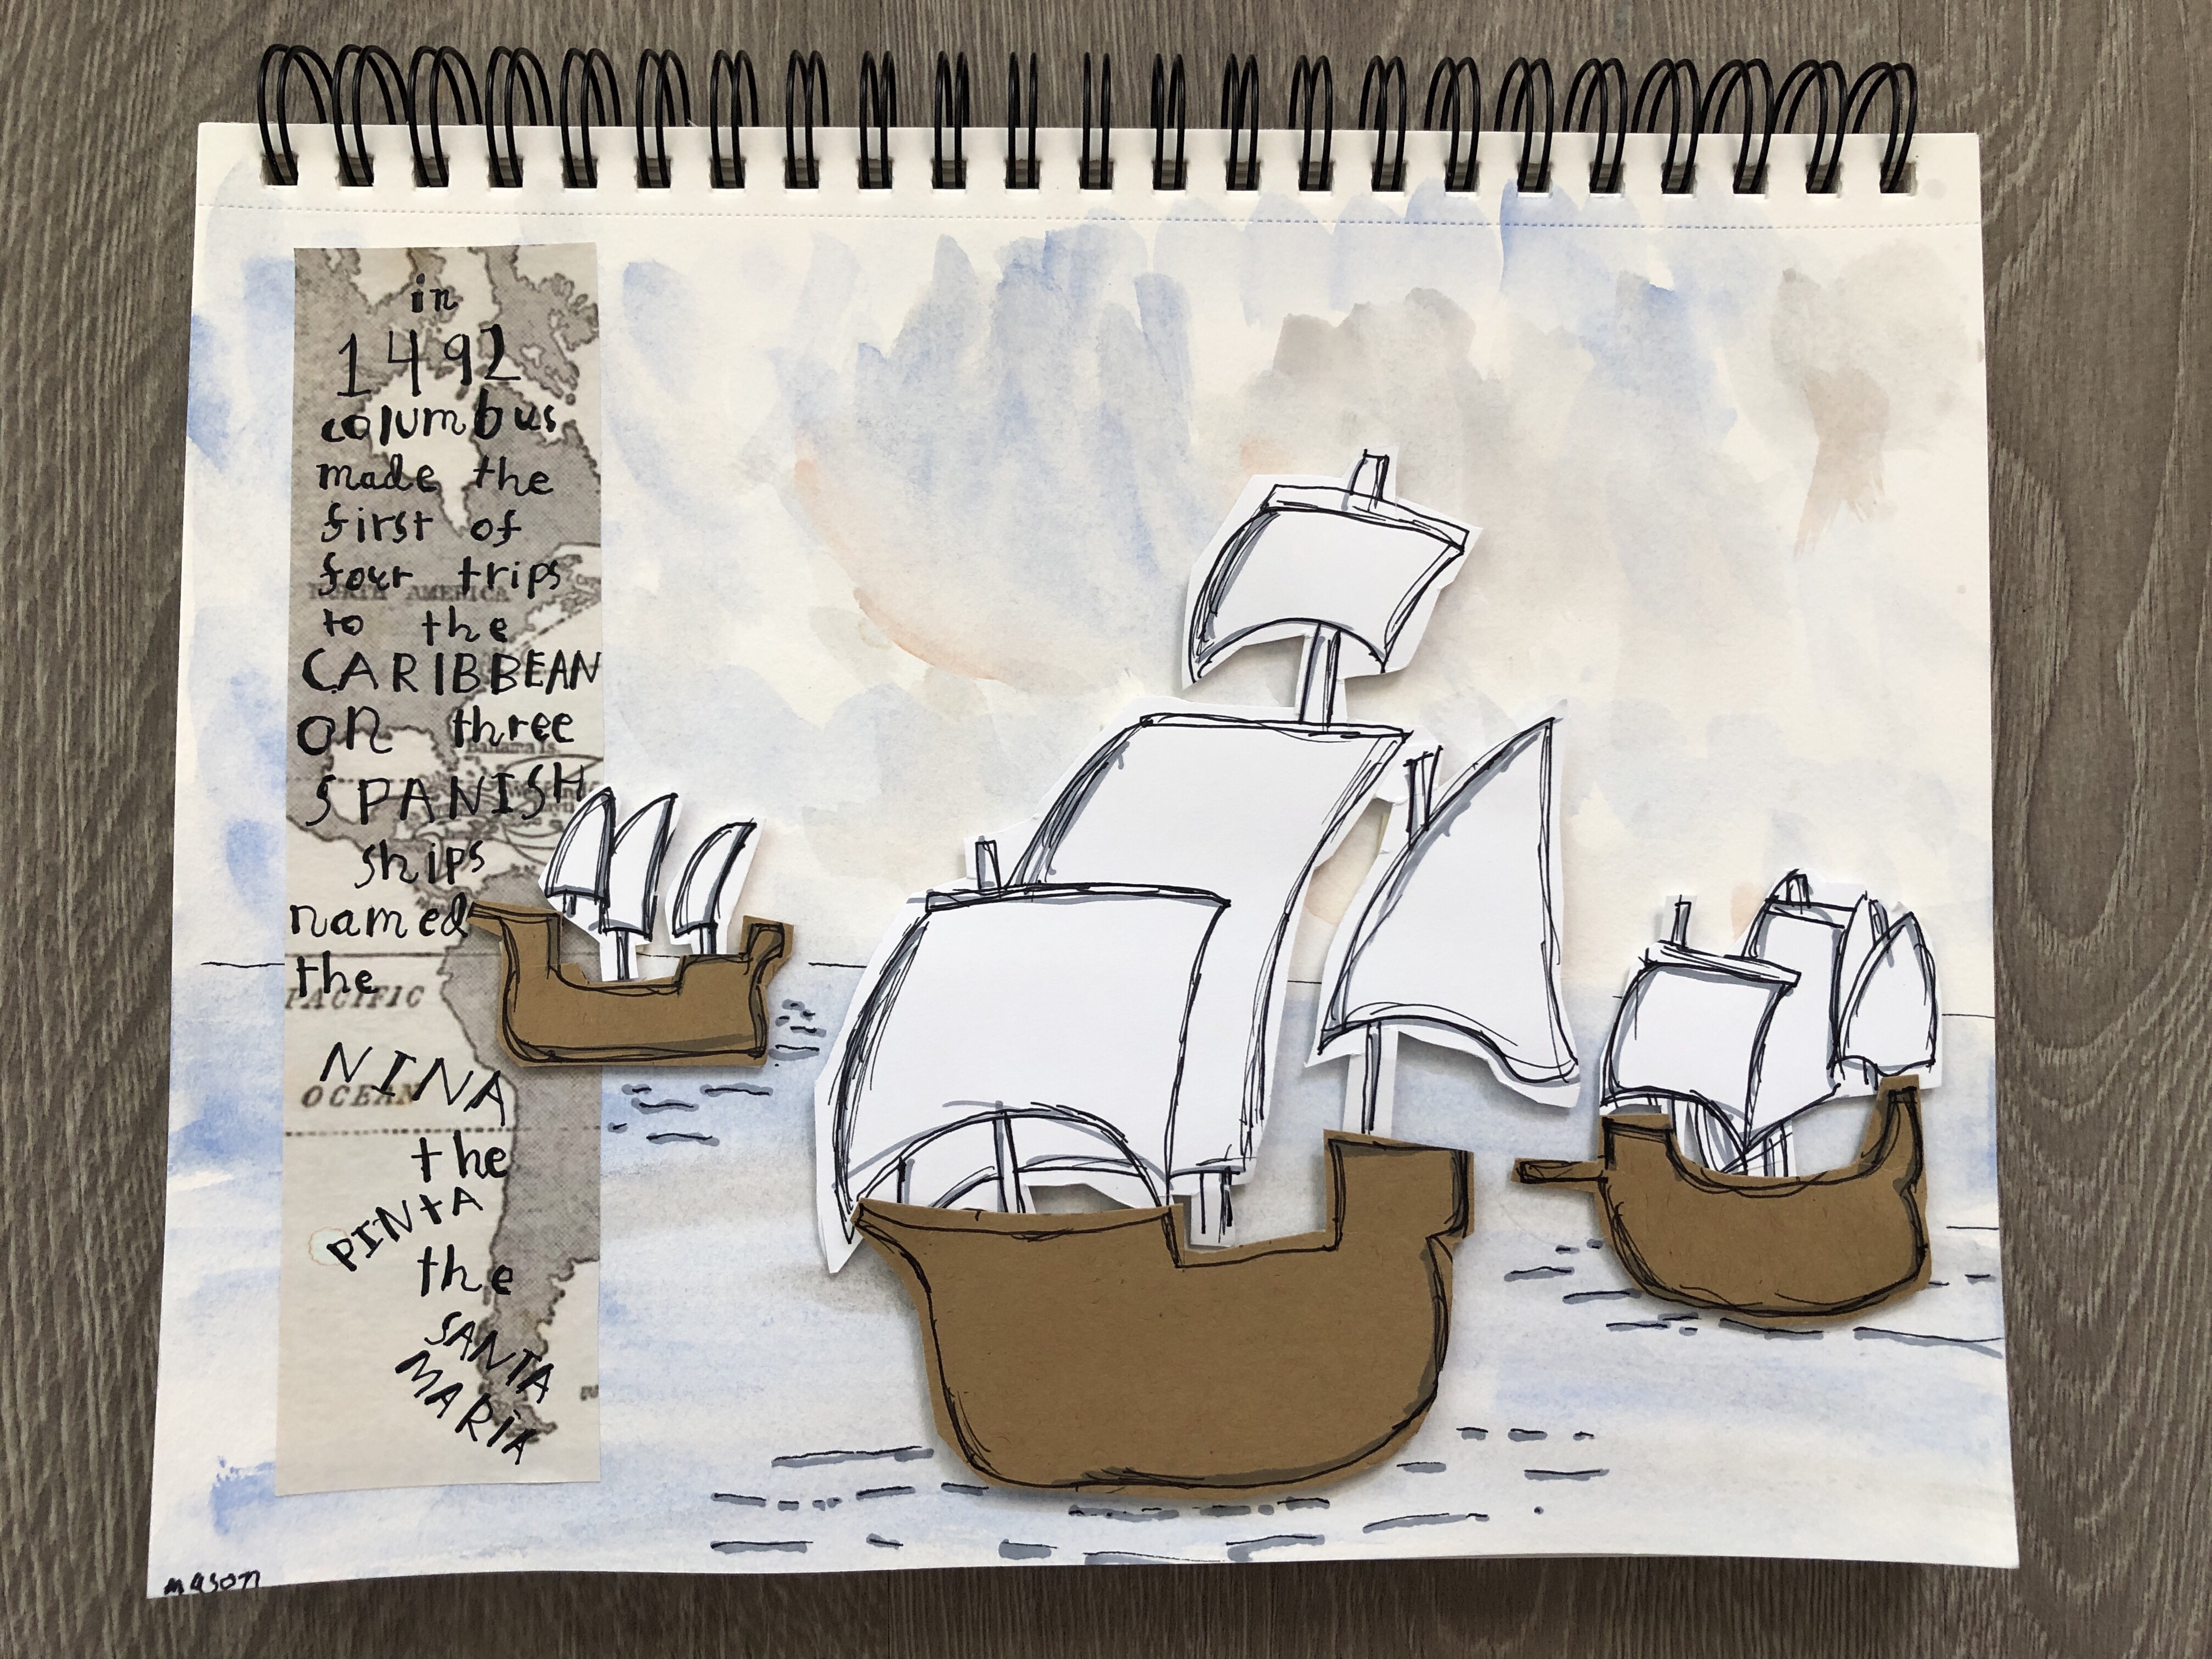 in
1492
columbus
made the
first of
four trips
NORTH AMERICA
to the
CARIBBEAN
on three
Bahama Is.
SPANISH
ships
named
the
PACIFIC
NINA
OCEAN
the
PINtA
the
SANTA
MARIA
mason